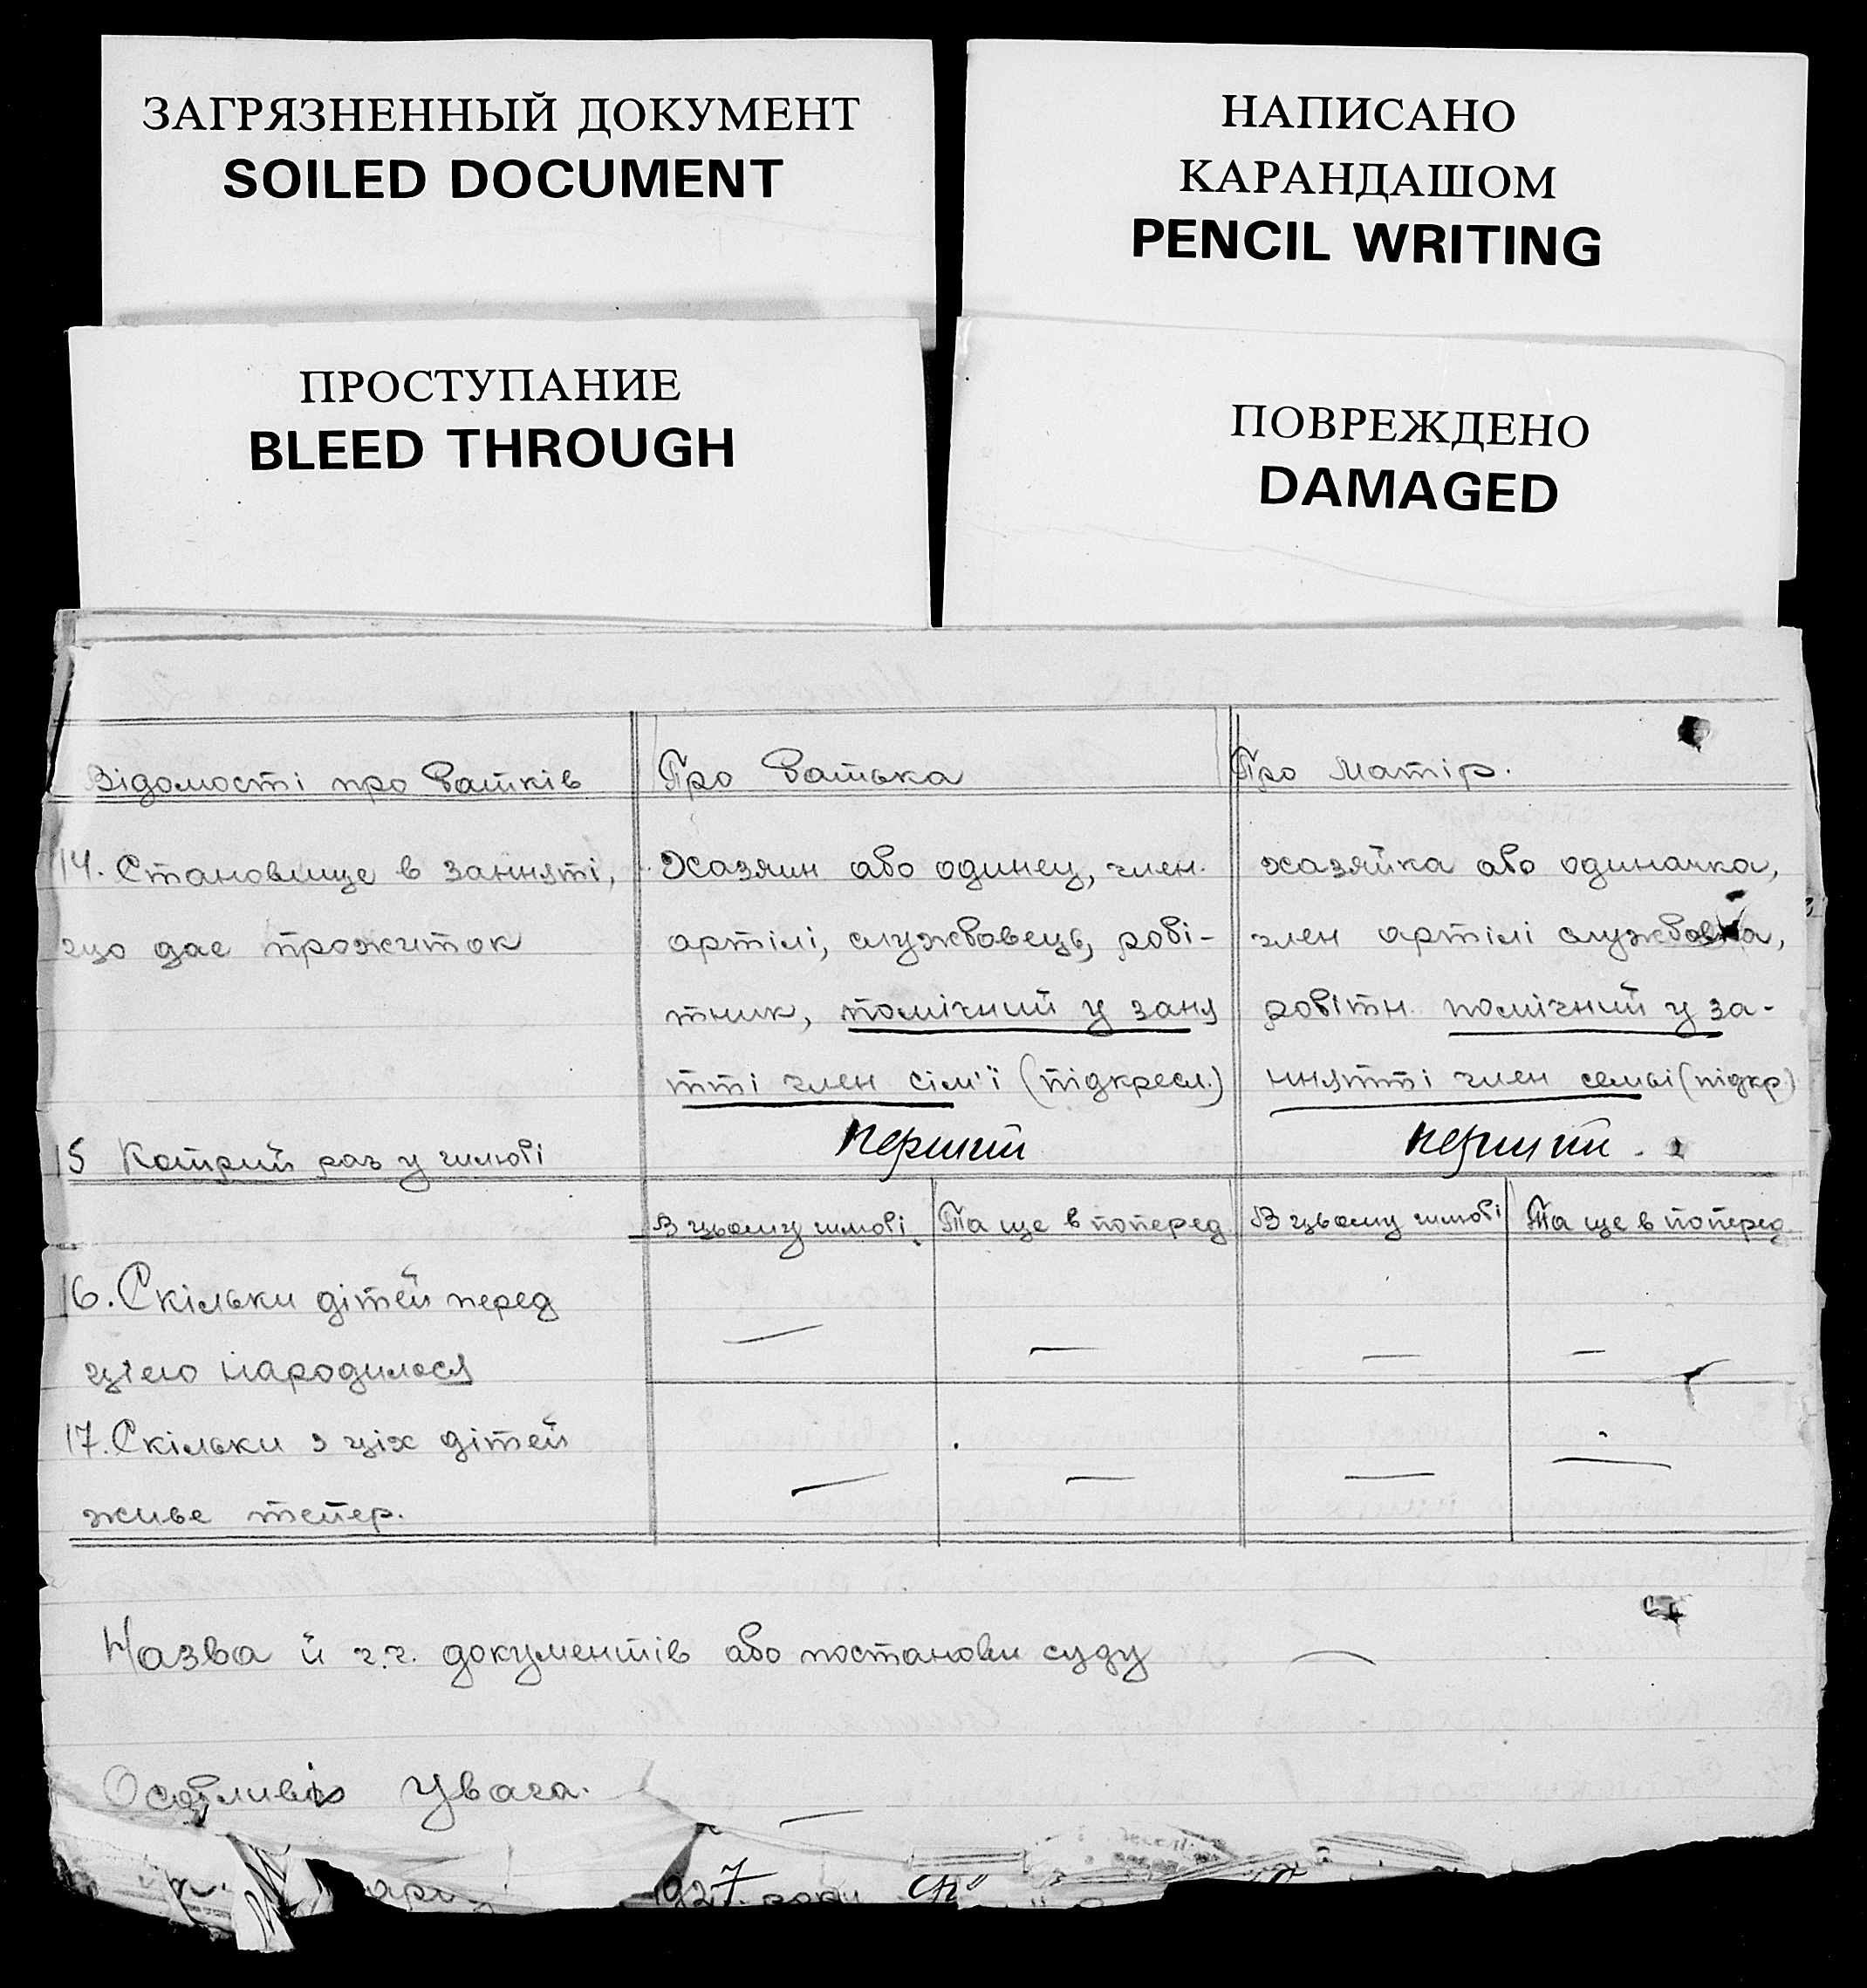 ЗАГРЯЗНЕННЫЙ ДОКУМЕНТ
SOILED DOCUMENT
НАПИСАНО
КАРАНДАШОМ
PENCIL WRITING
ПРОСТУПАНИЕ
BLEED THROUGH
ПОВРЕЖДЕНО
DAMAGED
Відомості про батків
Про батька
Про матір.
14. Становище в занняті,
що дає прожиток
Хазяин або одинец, член.
артілі, службовець, робі-
тник, помічний у заня
тті член сім'ї (підкресл.)
хазяйка або одиначка,
член артілі службовка,
робітн. помічний у за-
ннятті член семьі (підкр)
15 Котрий раз у шлюбі
перший
перший.
В цьому шлюбі
Та ще в поперед
В цьому шлюбі
Та ще в поперед
16. Скільки дітей перед
цією народилося
— — — —
17. Скільки з ціх дітей
живе тепер.
— — — —
Назва й ч.ч. документів або постанови суду —
Особливі Увага. —
1927 року